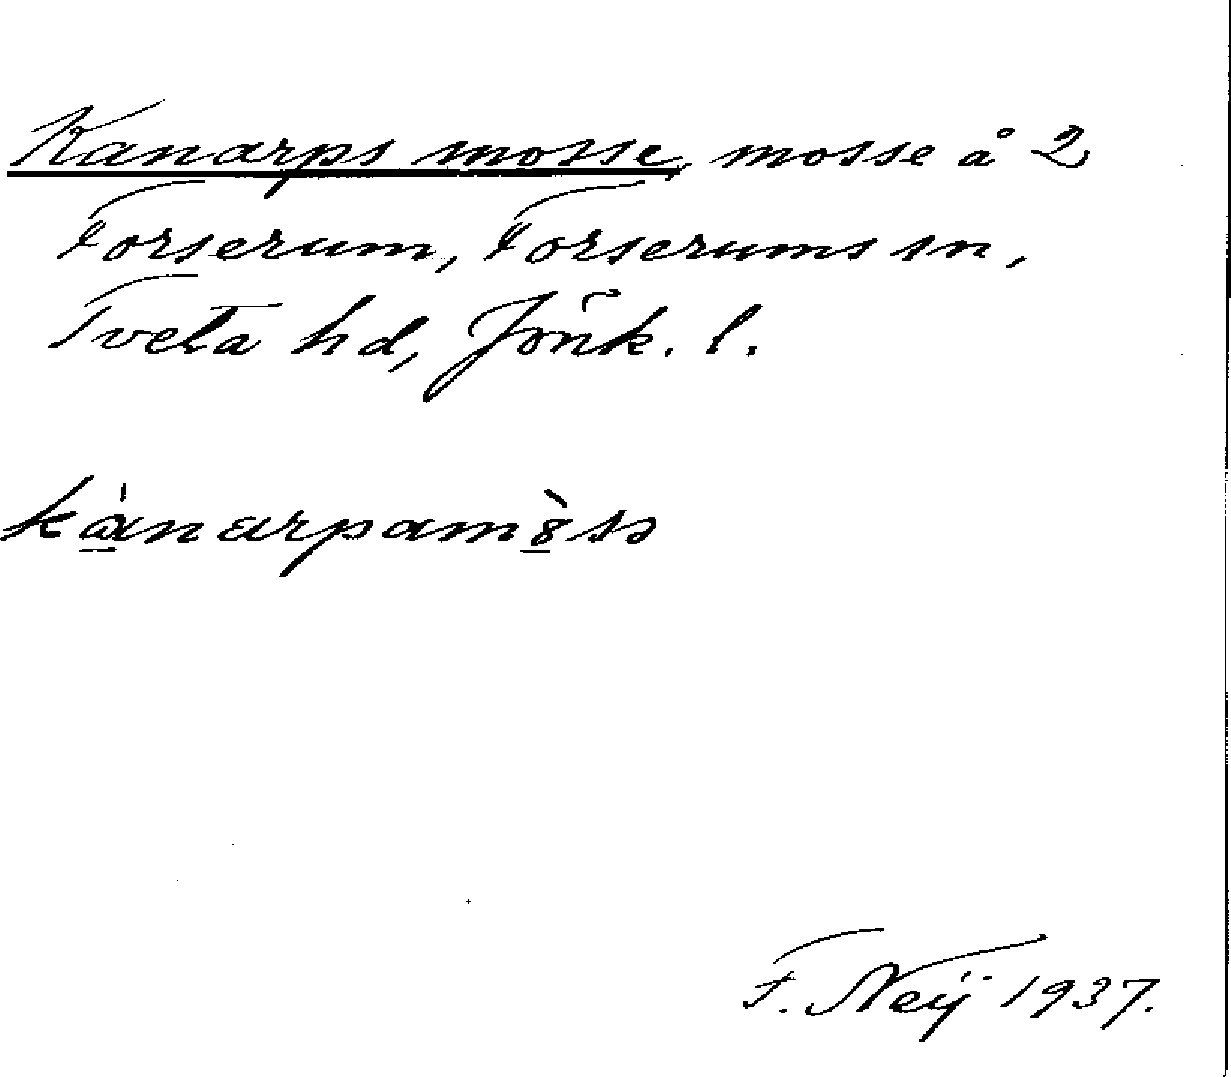 Kanarps mosse, mosse å 2
Forserum, Forserums sn,
Tveta hd, Jönk. l.
kànarpamòss
F. Neij 1937.